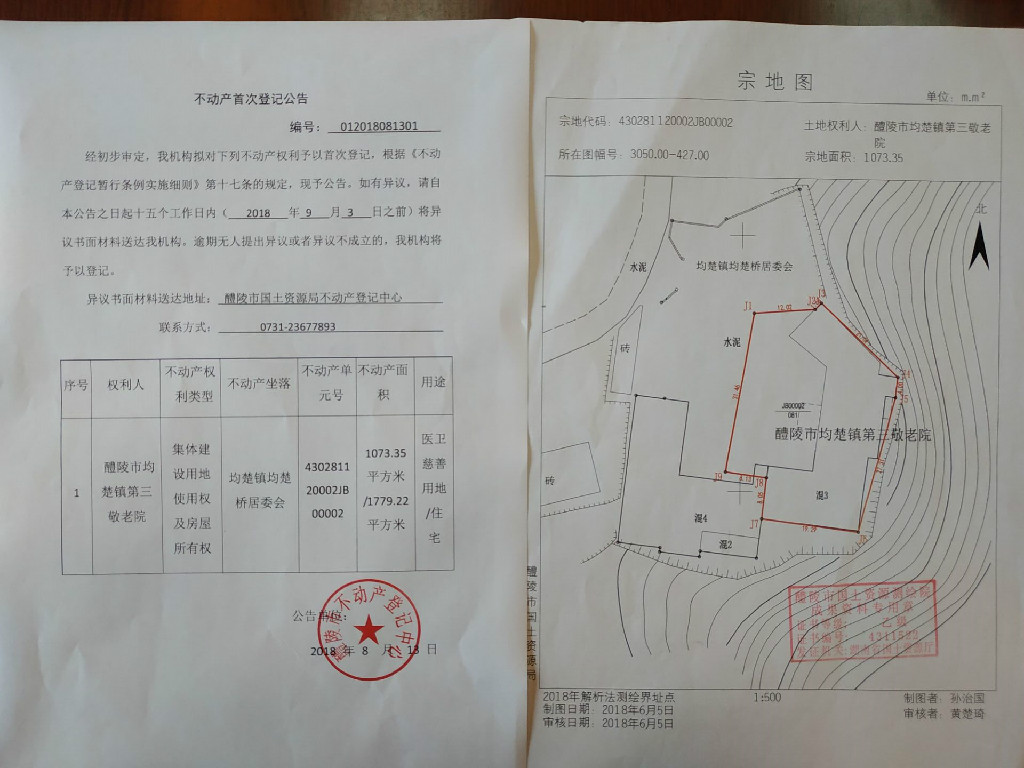 不动产首次登记公告
编号： 012018081301
经初步审定，我机构拟对下列不动产权利予以首次登记，根据《不动
产登记暂行条例实施细则》第十七条的规定，现予公告。如有异议，请自
本公告之日起十五个工作日内（ 2018 年 9 月 3 日之前）将异
议书面材料送达我机构。逾期无人提出异议或者异议不成立的，我机构将
予以登记。
异议书面材料送达地址： 醴陵市国土资源局不动产登记中心
联系方式： 0731-23677893
序号 权利人 不动产权利类型 不动产坐落 不动产单元号 不动产面积 用途
1 醴陵市均楚镇第三敬老院 集体建设用地使用权及房屋所有权 均楚镇均楚桥居委会 430281120002JB00002 1073.35平方米/1779.22平方米 医卫慈善用地/住宅
公告单位：
2018 年 8 月 13 日
醴陵市不动产登记中心
宗地图
单位： m.m²
宗地代码： 430281120002JB00002
土地权利人： 醴陵市均楚镇第三敬老
院
所在图幅号： 3060.00-427.00
宗地面积： 1073.35
北
水泥
均楚镇均楚桥居委会
J1
J2
J3
水泥
砖
J4
J5
JB00002
081
醴陵市均楚镇第三敬老院
砖
J9
J8
混3
混4
J7
J6
混2
醴陵市国土资源局
醴陵市国土资源测绘院
成果资料专用章
证书等级： 乙级
证书编号： 4311522
发证机关：湖南省国土资源厅
2018年解析法测绘界址点
制图日期： 2018年6月5日
审核日期： 2018年6月5日
1:500
制图者： 孙治国
审核者： 黄楚琦